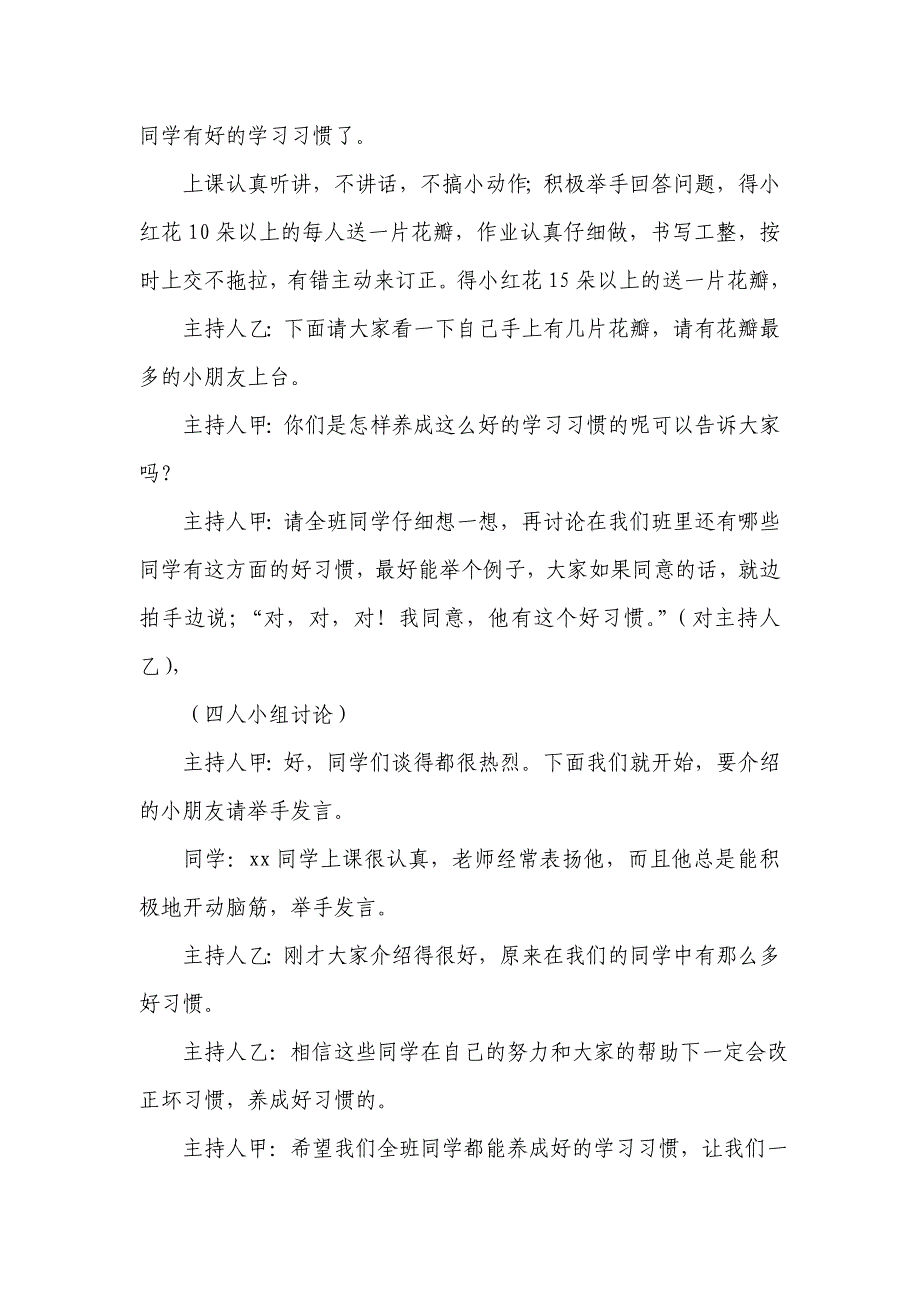 同学有好的学习习惯了。
上课认真听讲，不讲话，不搞小动作；积极举手回答问题，得小
红花 10 朵以上的每人送一片花瓣，作业认真仔细做，书写工整，按
时上交不拖拉，有错主动来订正。得小红花 15 朵以上的送一片花瓣，
主持人乙：下面请大家看一下自己手上有几片花瓣，请有花瓣最
多的小朋友上台。
主持人甲：你们是怎样养成这么好的学习习惯的呢可以告诉大家
吗？
主持人甲：请全班同学仔细想一想，再讨论在我们班里还有哪些
同学有这方面的好习惯，最好能举个例子，大家如果同意的话，就边
拍手边说；“对，对，对！我同意，他有这个好习惯。”（对主持人
乙），
（四人小组讨论）
主持人甲：好，同学们谈得都很热烈。下面我们就开始，要介绍
的小朋友请举手发言。
同学：xx 同学上课很认真，老师经常表扬他，而且他总是能积
极地开动脑筋，举手发言。
主持人乙：刚才大家介绍得很好，原来在我们的同学中有那么多
好习惯。
主持人乙：相信这些同学在自己的努力和大家的帮助下一定会改
正坏习惯，养成好习惯的。
主持人甲：希望我们全班同学都能养成好的学习习惯，让我们一